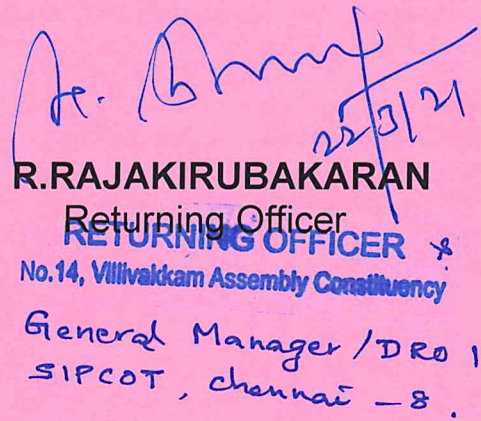 22/3/21
R.RAJAKIRUBAKARAN
Returning Officer
RETURNING OFFICER
No.14, Villivakkam Assembly Constituency
General Manager / DRO
SIPCOT, Chennai - 8.